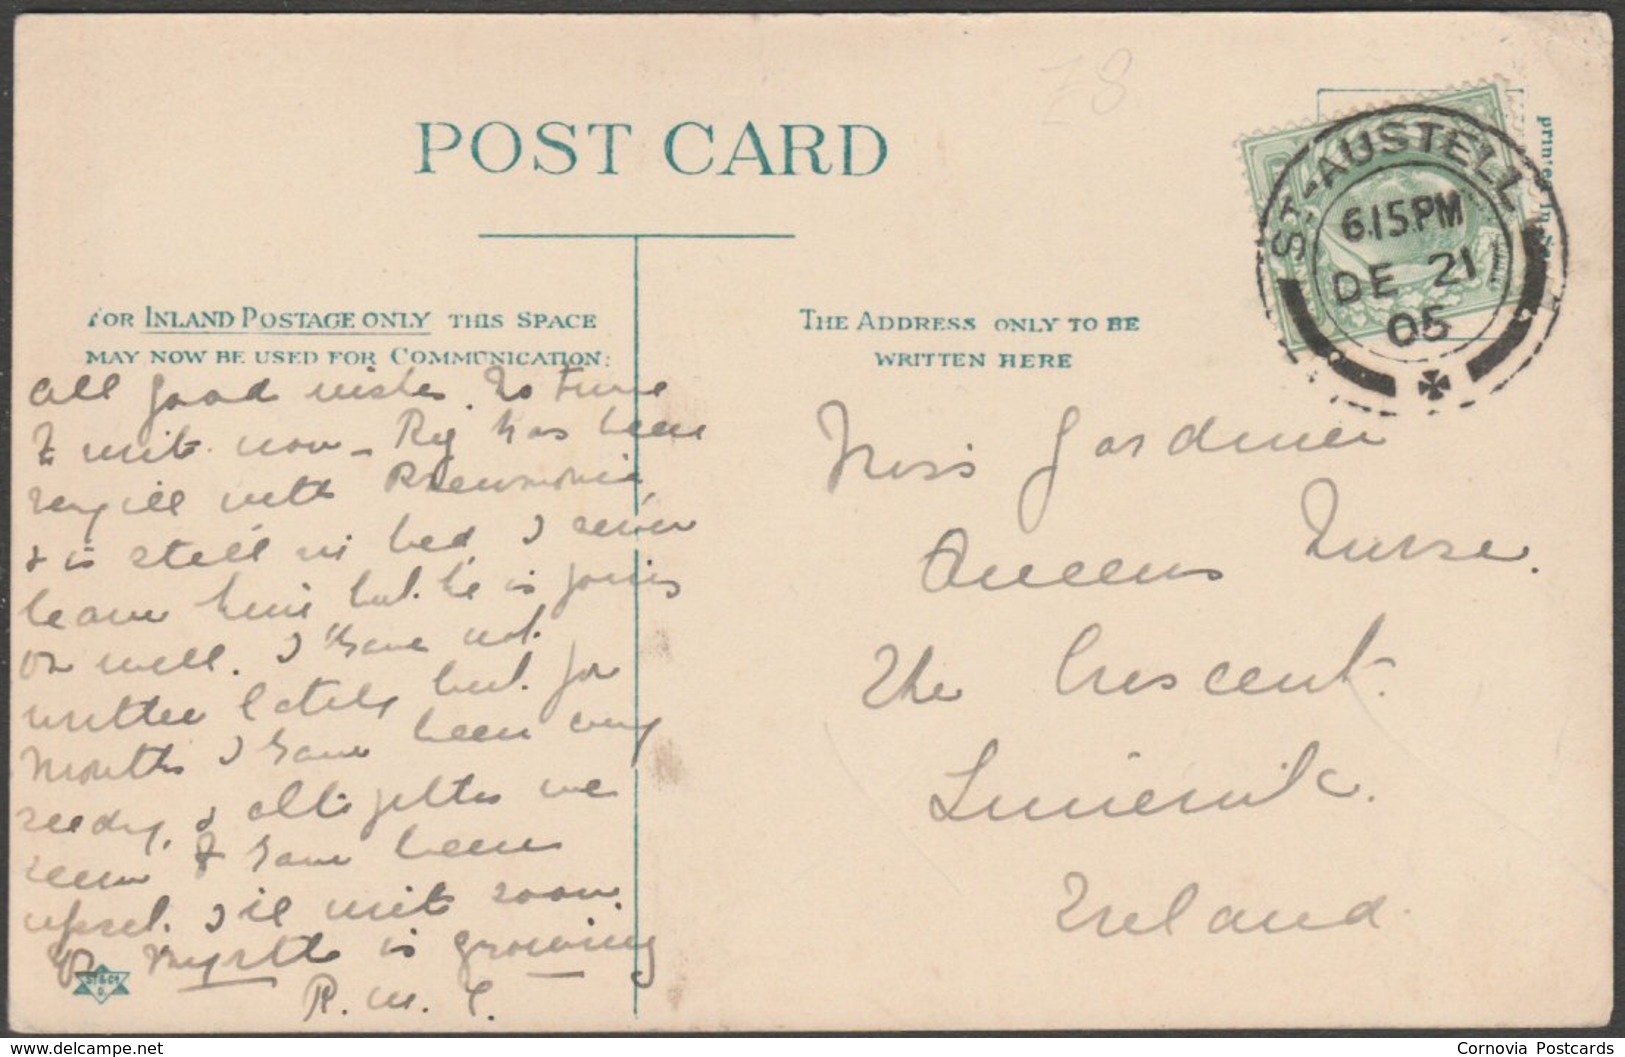 POST CARD
FOR INLAND POSTAGE ONLY THIS SPACE
MAY NOW BE USED FOR COMMUNICATION:
THE ADDRESS ONLY TO BE
WRITTEN HERE
ST. AUSTELL
6.15 PM
DE 21
05
All good wishes. No time
to write now - Reg has been
very ill with Pneumonia
& is still in bed, I never
leave him but he is going
on well. I have not
written lately but for
months I have been very
seedy, & altogether we
seem to have been
upset. I'll write soon.
Myrtle is growing
R. M. C.
Miss Gardiner
Queens Nurse.
The Crescent.
Limerick.
Ireland.
Cornovia Postcards
www.delcampe.net